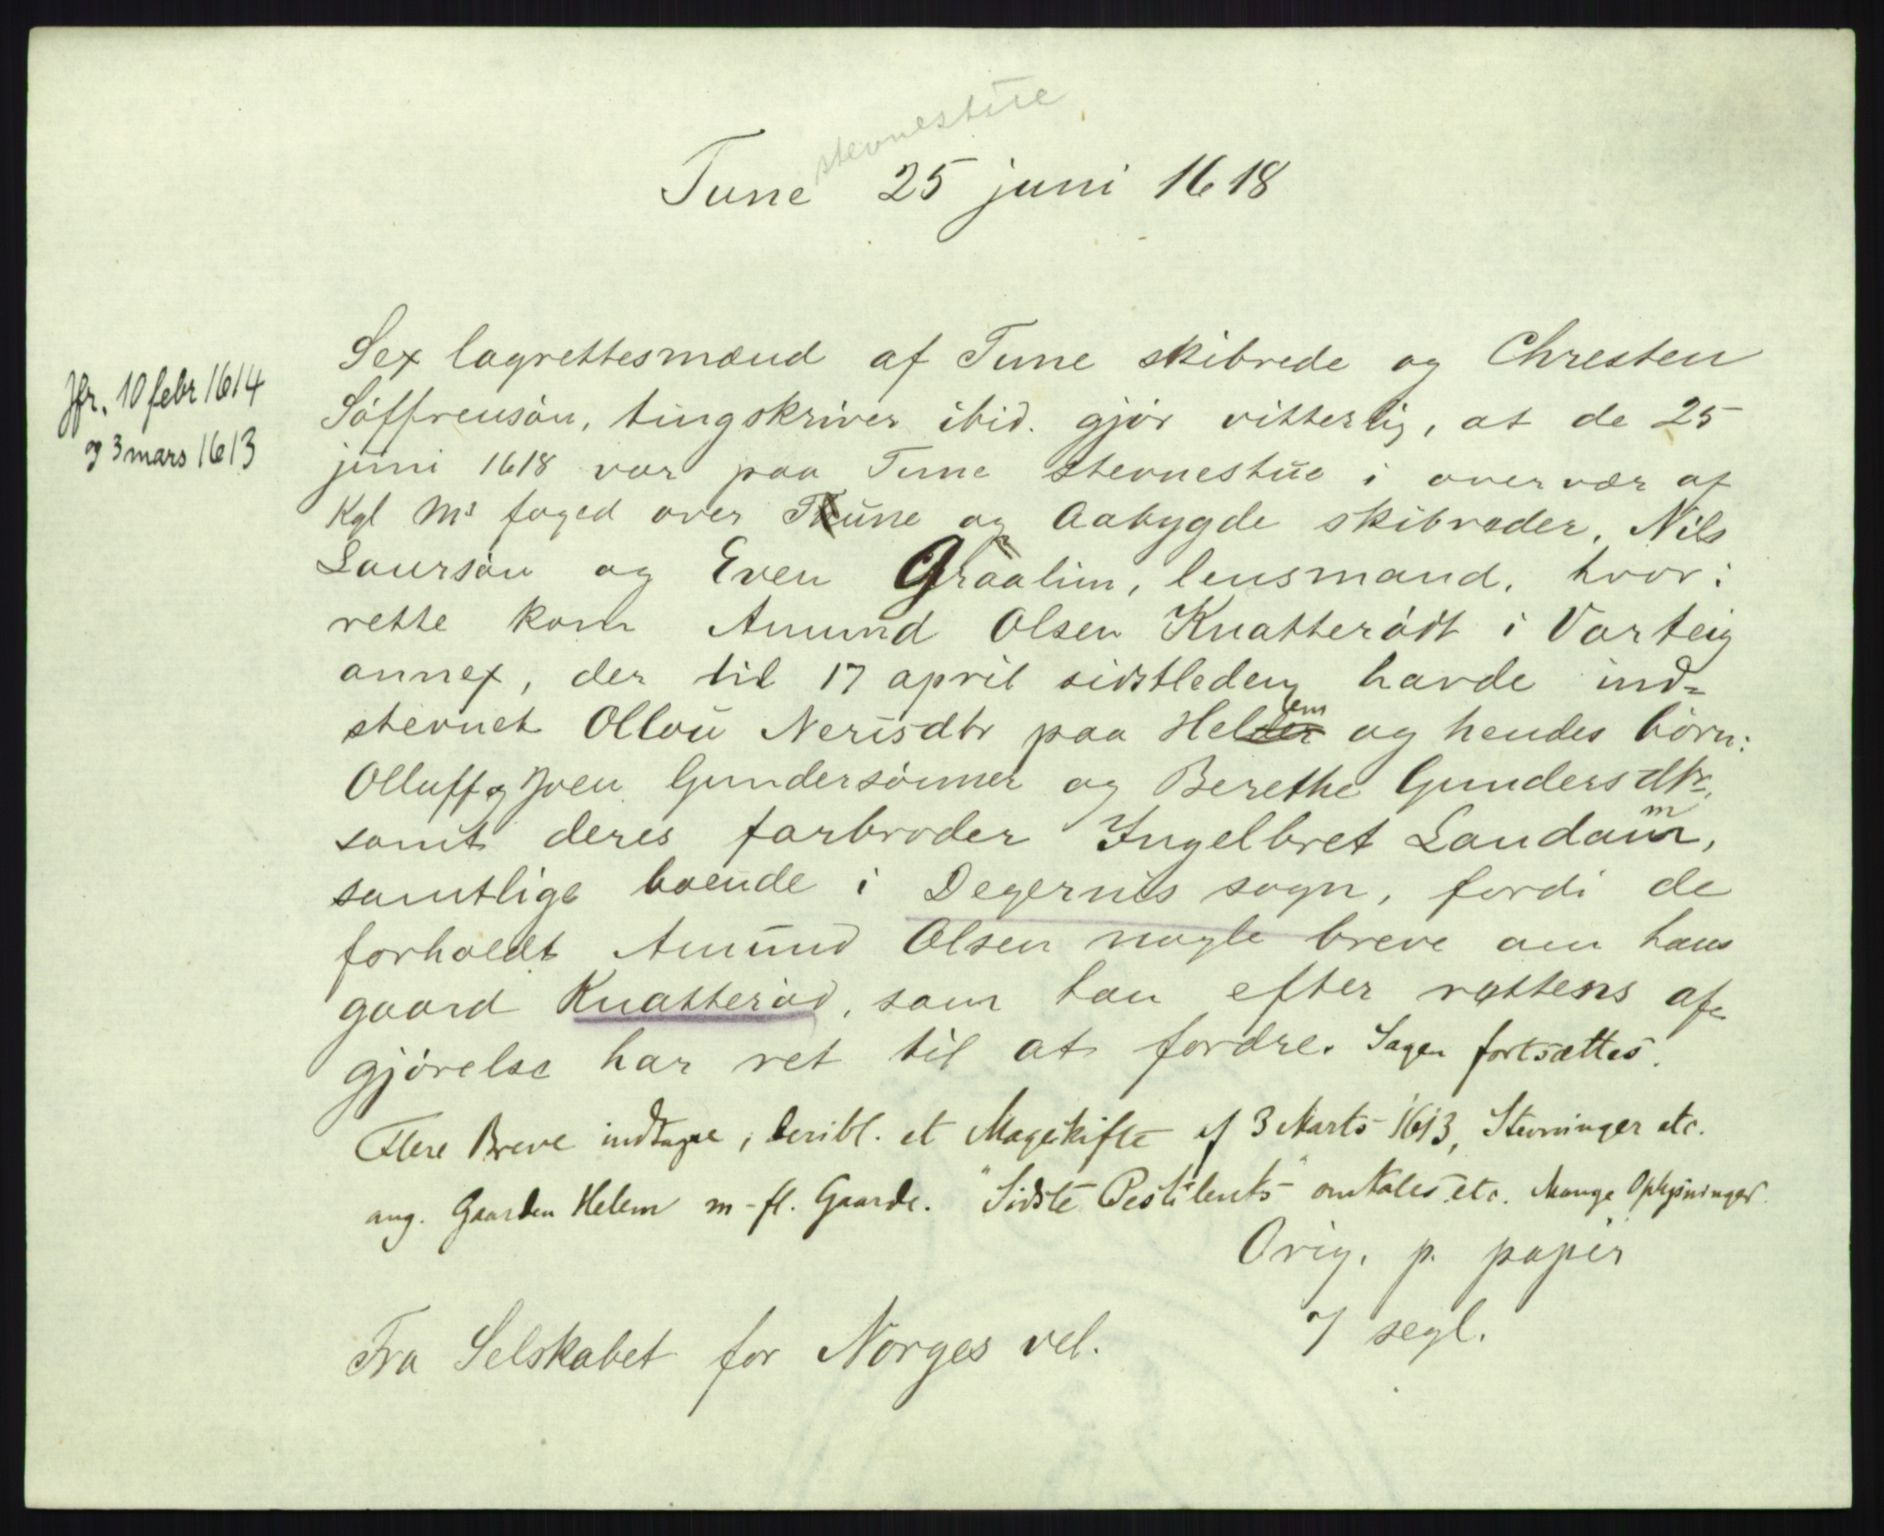 stevnestue
Tune 25 juni 1618
Jfr. 10 febr 1614
og 3 mars 1613
Sex lagrettesmænd af Tune skibrede og Chresten
Söffrensön, tingskriver ibid. gjör vitterlig, at de 25
juni 1618 var paa Tune stevnestue i overvær af
Kgl Ms foged over Tune og Aabygde skibreder, Nils
Laursön og Even Graalim, lensmand, hvor i
rette kom Amund Olsen Knatterödt i Varteig
annex, der til 17 april sidstleden havde ind=
stevnet Ollou Nerisdtr paa Helem og hendes börn:
Olluff og Joen Gundersönner og Berethe Gundersdtr,
samt deres farbroder Ingelbret Landam,
samtlige boende i Degernis sogn, fordi de
forholdt Amund Olsen nogle breve om hans
gaard Knatteröd, som han efter rettens af=
gjörelse har ret til at fordre. Sagen fortsættes.
Flere Breve indtagne, deribl. et Mageskifte af 3 Marts 1613, Stevninger etc.
ang. Gaarden Helem m-fl. Gaarde. "Sidste Pestilents" omtales etc. Mange Oplysninger.
Orig. p. papir
7 segl.
Fra Selskabet for Norges vel.